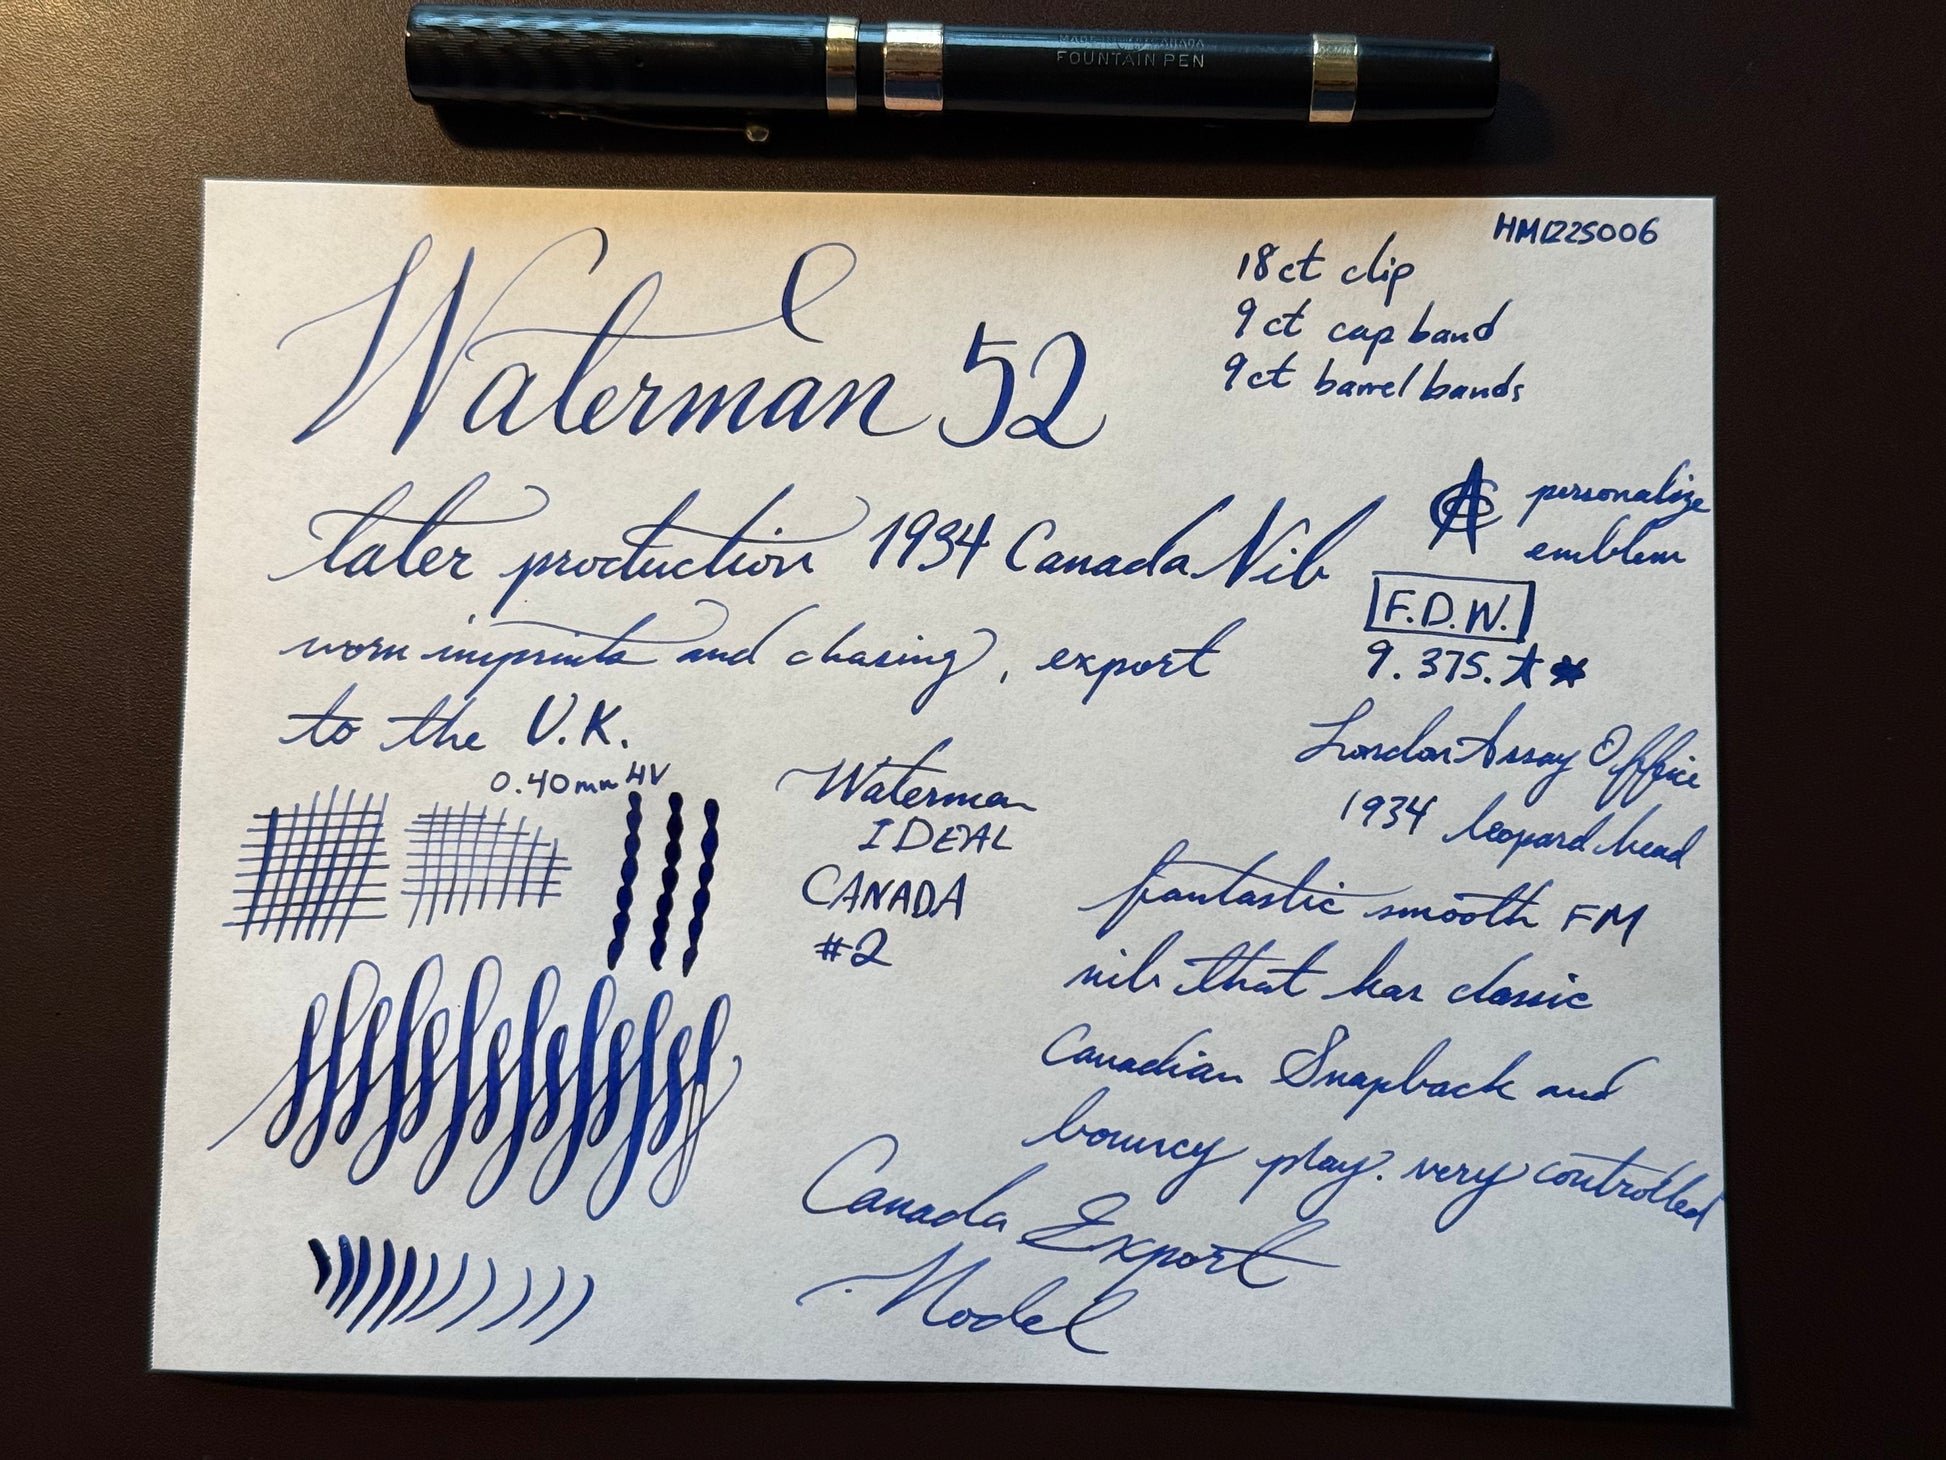 MADE IN CANADA
FOUNTAIN PEN
HM1225006
Waterman 52
18ct clip
9ct cap band
9ct barrel bands
later production 1934 Canada Nib
personalize
emblem
F.D.W.
9.375.
worn imprints and chasing, export
to the U.K.
London Assay Office
1934 leopard head
0.40mm HV
Waterman
IDEAL
CANADA
#2
fantastic smooth FM
nib that has classic
Canadian Snapback and
bouncy play. very controlled
Canada Export
Model